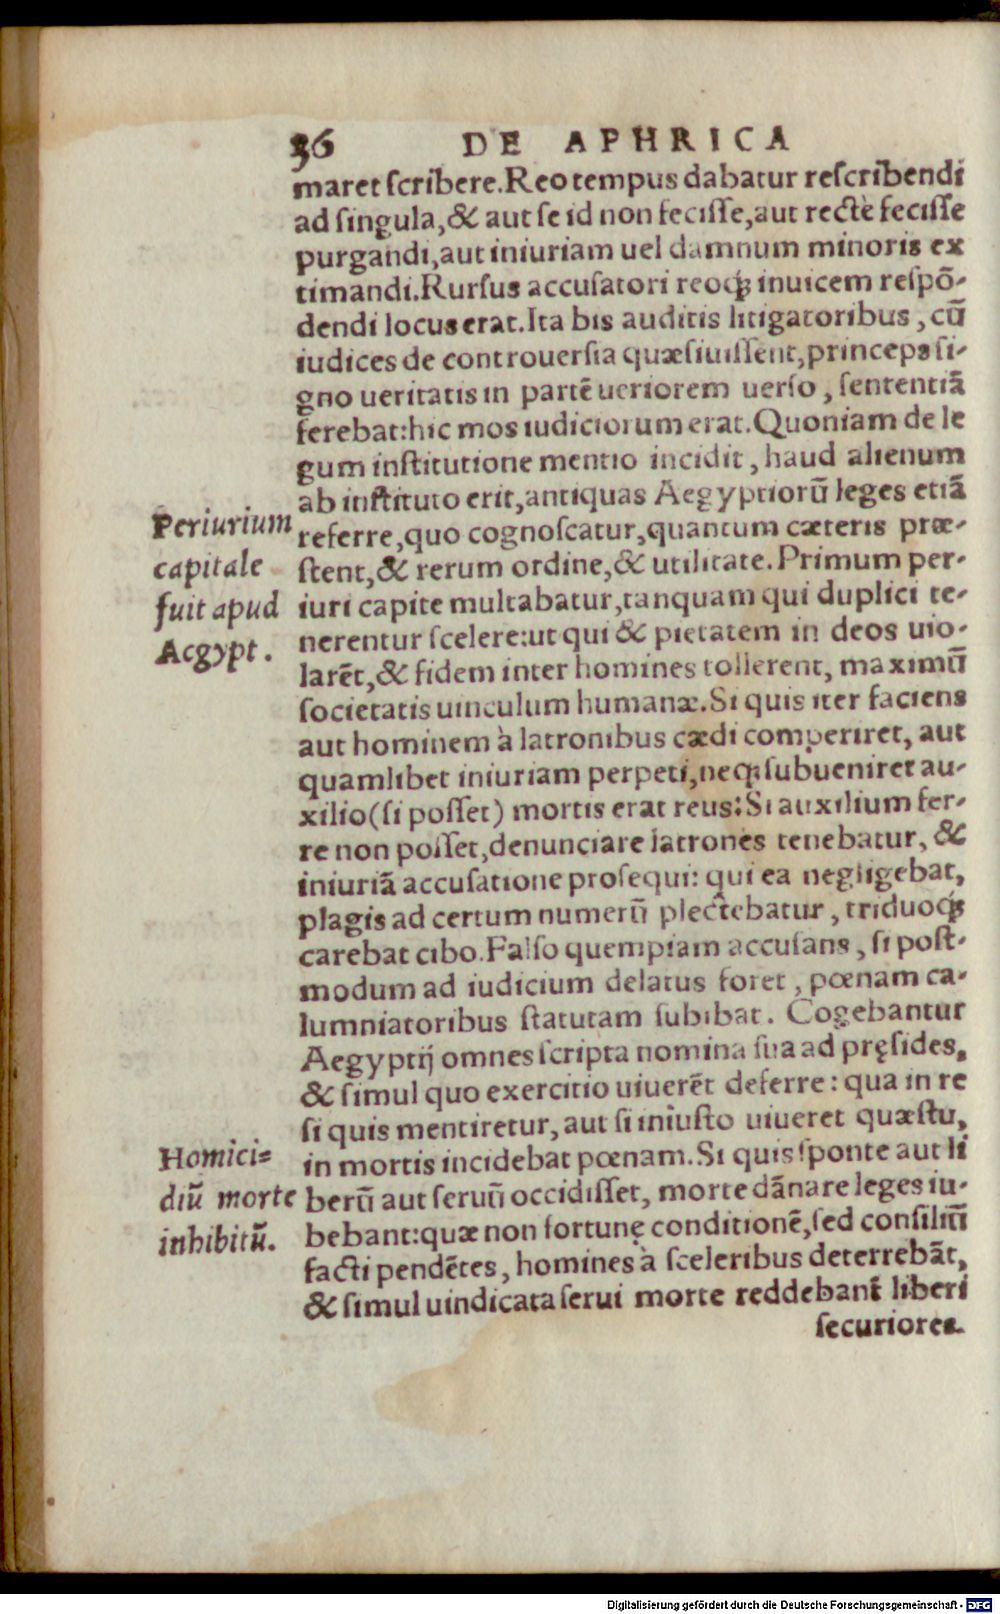 36 DE APHRICA
maret ſcribere. Reo tempus dabatur reſcribendi
ad ſingula, & aut ſe id non feciſſe, aut rectè feciſſe
purgandi, aut iniuriam uel damnum minoris ex
timandi. Rurſus accuſatori reoqꝫ inuicem reſpõ-
dendi locus erat. Ita bis auditis litigatoribus, cũ
iudices de controuerſia quæſiuiſſent, princeps ſi-
gno ueritatis in partẽ ueriorem uerſo, ſententiã
ferebat: hic mos iudiciorum erat. Quoniam de le
gum inſtitutione mentio incidit, haud alienum
ab inſtituto erit, antiquas Aegyptiorũ leges etiã
Periurium
capitale
fuit apud
Aegypt.
referre, quo cognoſcatur, quantum cæteris præ-
ſtent, & rerum ordine, & utilitate. Primum per-
iuri capite multabatur, tanquam qui duplici te-
nerentur ſcelere: ut qui & pietatem in deos uio-
larẽt, & fidem inter homines tollerent, maximũ
ſocietatis uinculum humanæ. Si quis iter faciens
aut hominem à latronibus cædi comperiret, aut
quamlibet iniuriam perpeti, neqꝫ ſubueniret au-
xilio (ſi poſſet) mortis erat reus: Si auxilium fer-
re non poſſet, denunciare latrones tenebatur, &
iniuriã accuſatione proſequi: qui ea negligebat,
plagis ad certum numerũ plectebatur, triduoqꝫ
carebat cibo. Falſo quempiam accuſans, ſi poſt-
modum ad iudicium delatus foret, pœnam ca-
lumniatoribus ſtatutam ſubibat. Cogebantur
Aegyptij omnes ſcripta nomina ſua ad pręſides,
& ſimul quo exercitio uiuerẽt deferre: qua in re
ſi quis mentiretur, aut ſi iniuſto uiueret quæſtu,
Homici=
diũ morte
inhibitũ.
in mortis incidebat pœnam. Si quis ſponte aut li
berũ aut ſeruũ occidiſſet, morte dãnare leges iu-
bebant: quæ non fortunę conditionẽ, ſed conſiliũ
facti pendẽtes, homines à ſceleribus deterrebãt,
& ſimul uindicata ſerui morte reddebant liberi
ſecuriores.
Digitalisierung gefördert durch die Deutsche Forschungsgemeinschaft - DFG